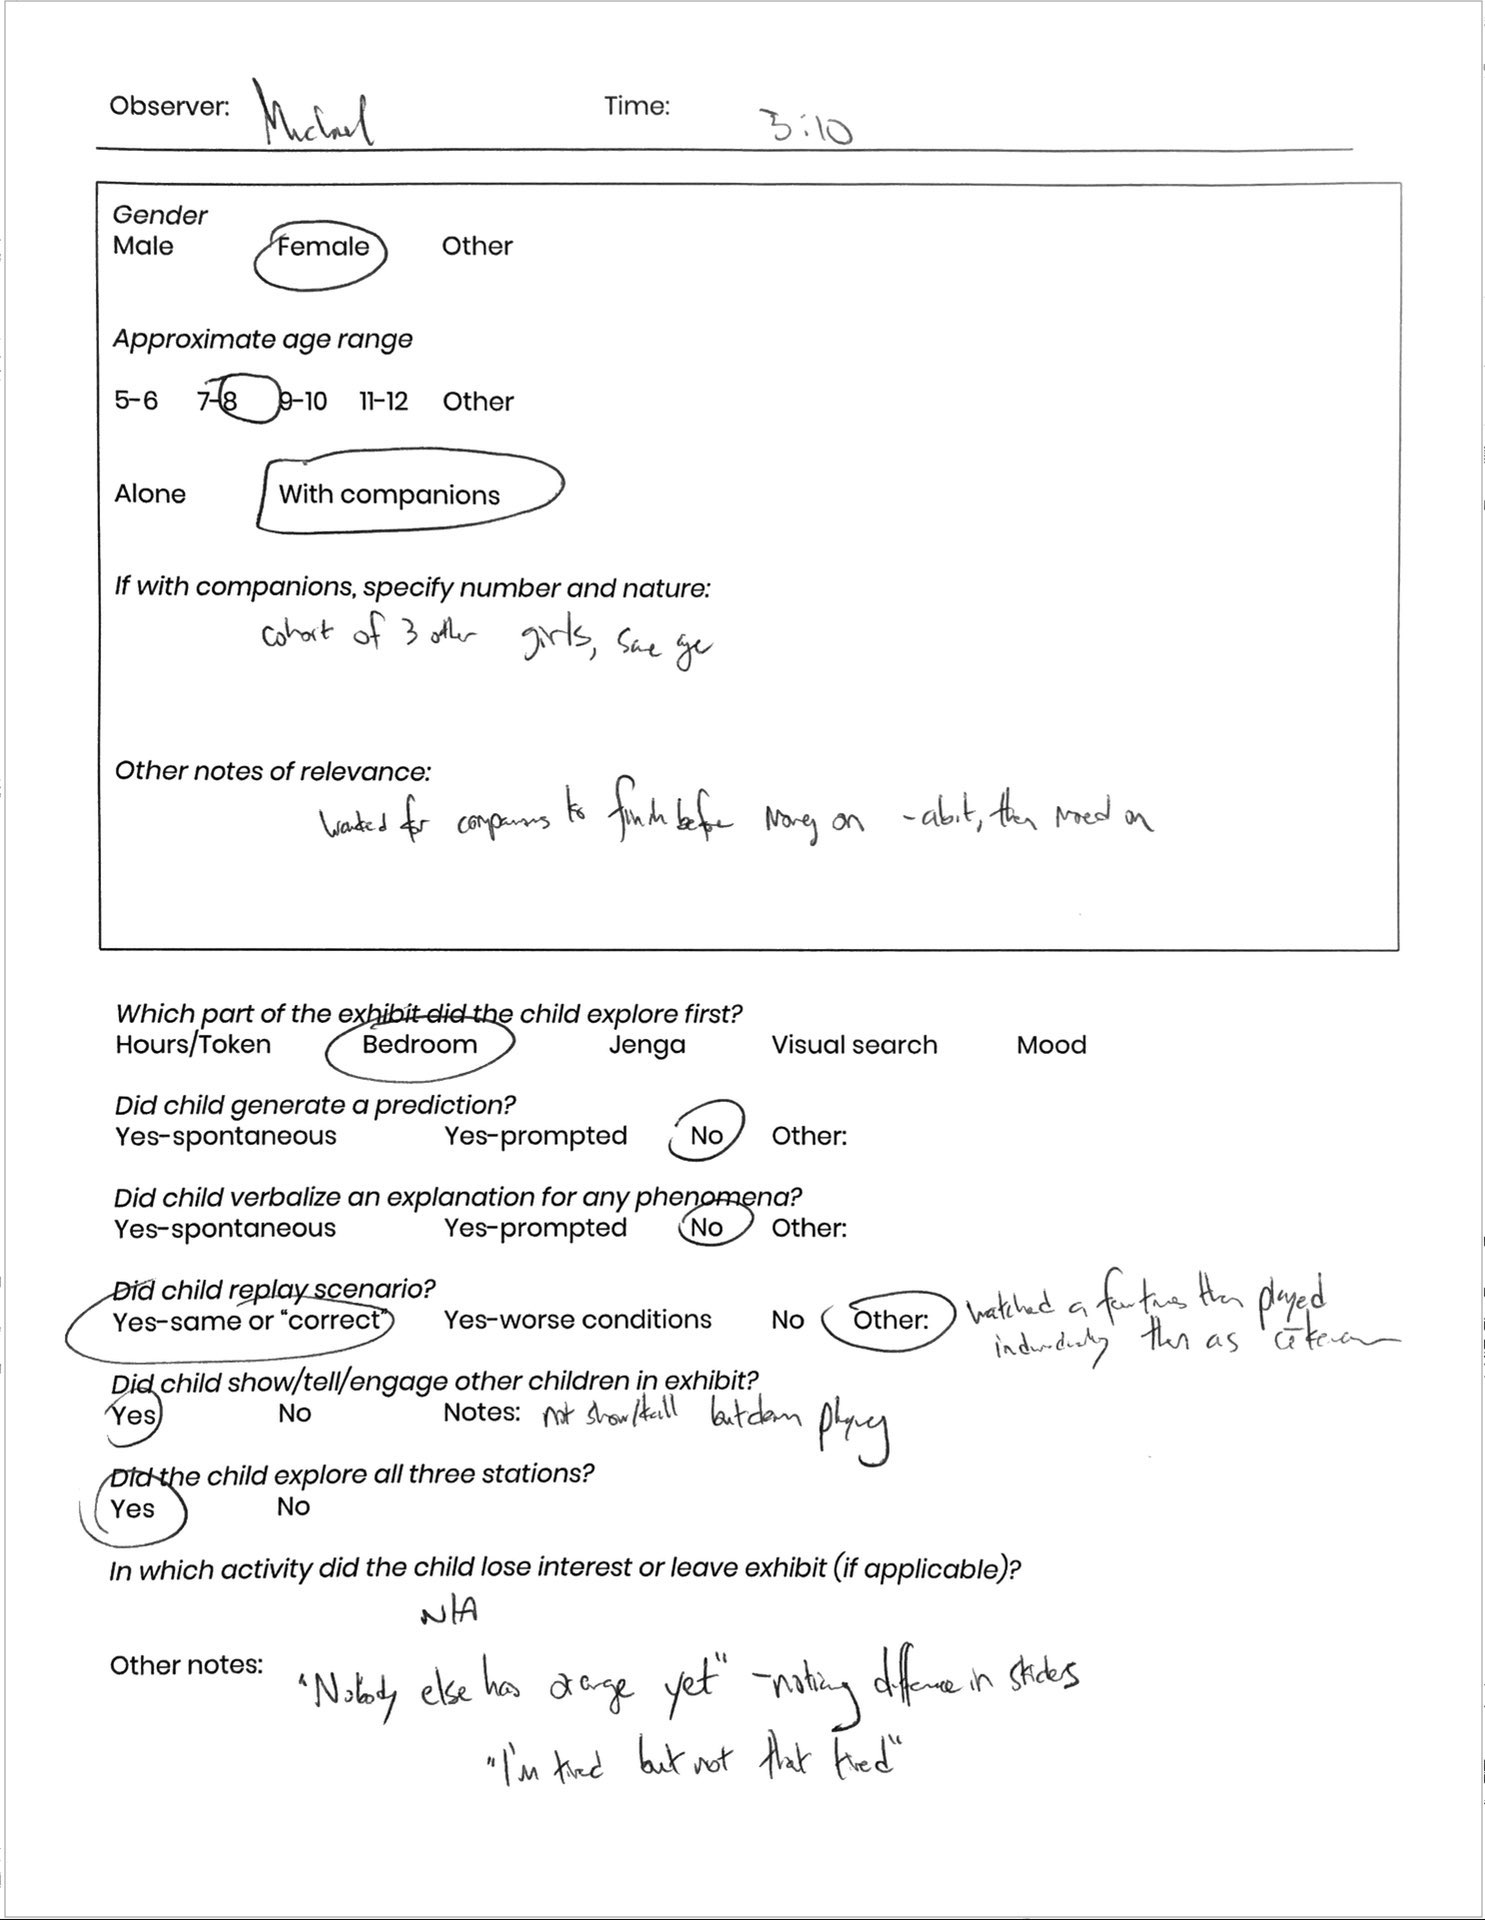 Observer: Michael Time: 3:10
Gender
Male Female Other
Approximate age range
5-6 7-8 9-10 11-12 Other
Alone With companions
If with companions, specify number and nature:
cohort of 3 other girls, same age
Other notes of relevance:
waited for companions to finish before moving on - a bit, then moved on
Which part of the exhibit did the child explore first?
Hours/Token Bedroom Jenga Visual search Mood
Did child generate a prediction?
Yes-spontaneous Yes-prompted No Other:
Did child verbalize an explanation for any phenomena?
Yes-spontaneous Yes-prompted No Other:
Did child replay scenario?
Yes-same or "correct" Yes-worse conditions No Other: watched a few times then played
individually then as a team
Did child show/tell/engage other children in exhibit?
Yes No Notes: not show/tell but playing
Did the child explore all three stations?
Yes No
In which activity did the child lose interest or leave exhibit (if applicable)?
N/A
Other notes: "Nobody else has orange yet" - noticing difference in stickers
"I'm tired but not that tired"